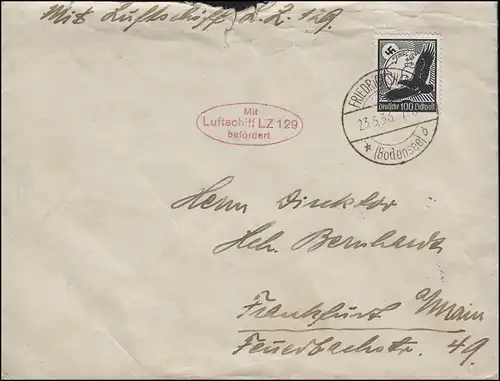 Mit Luftschiff L.Z. 129.
Deutsche 100 Luftpost
FRIEDRICHSHAFEN
23.3.36
(Bodensee) b
Mit
Luftschiff LZ 129
befördert
Herrn Direktor
Hch. Bernhardt
Frankfurt Main
Feuerbachstr. 49.